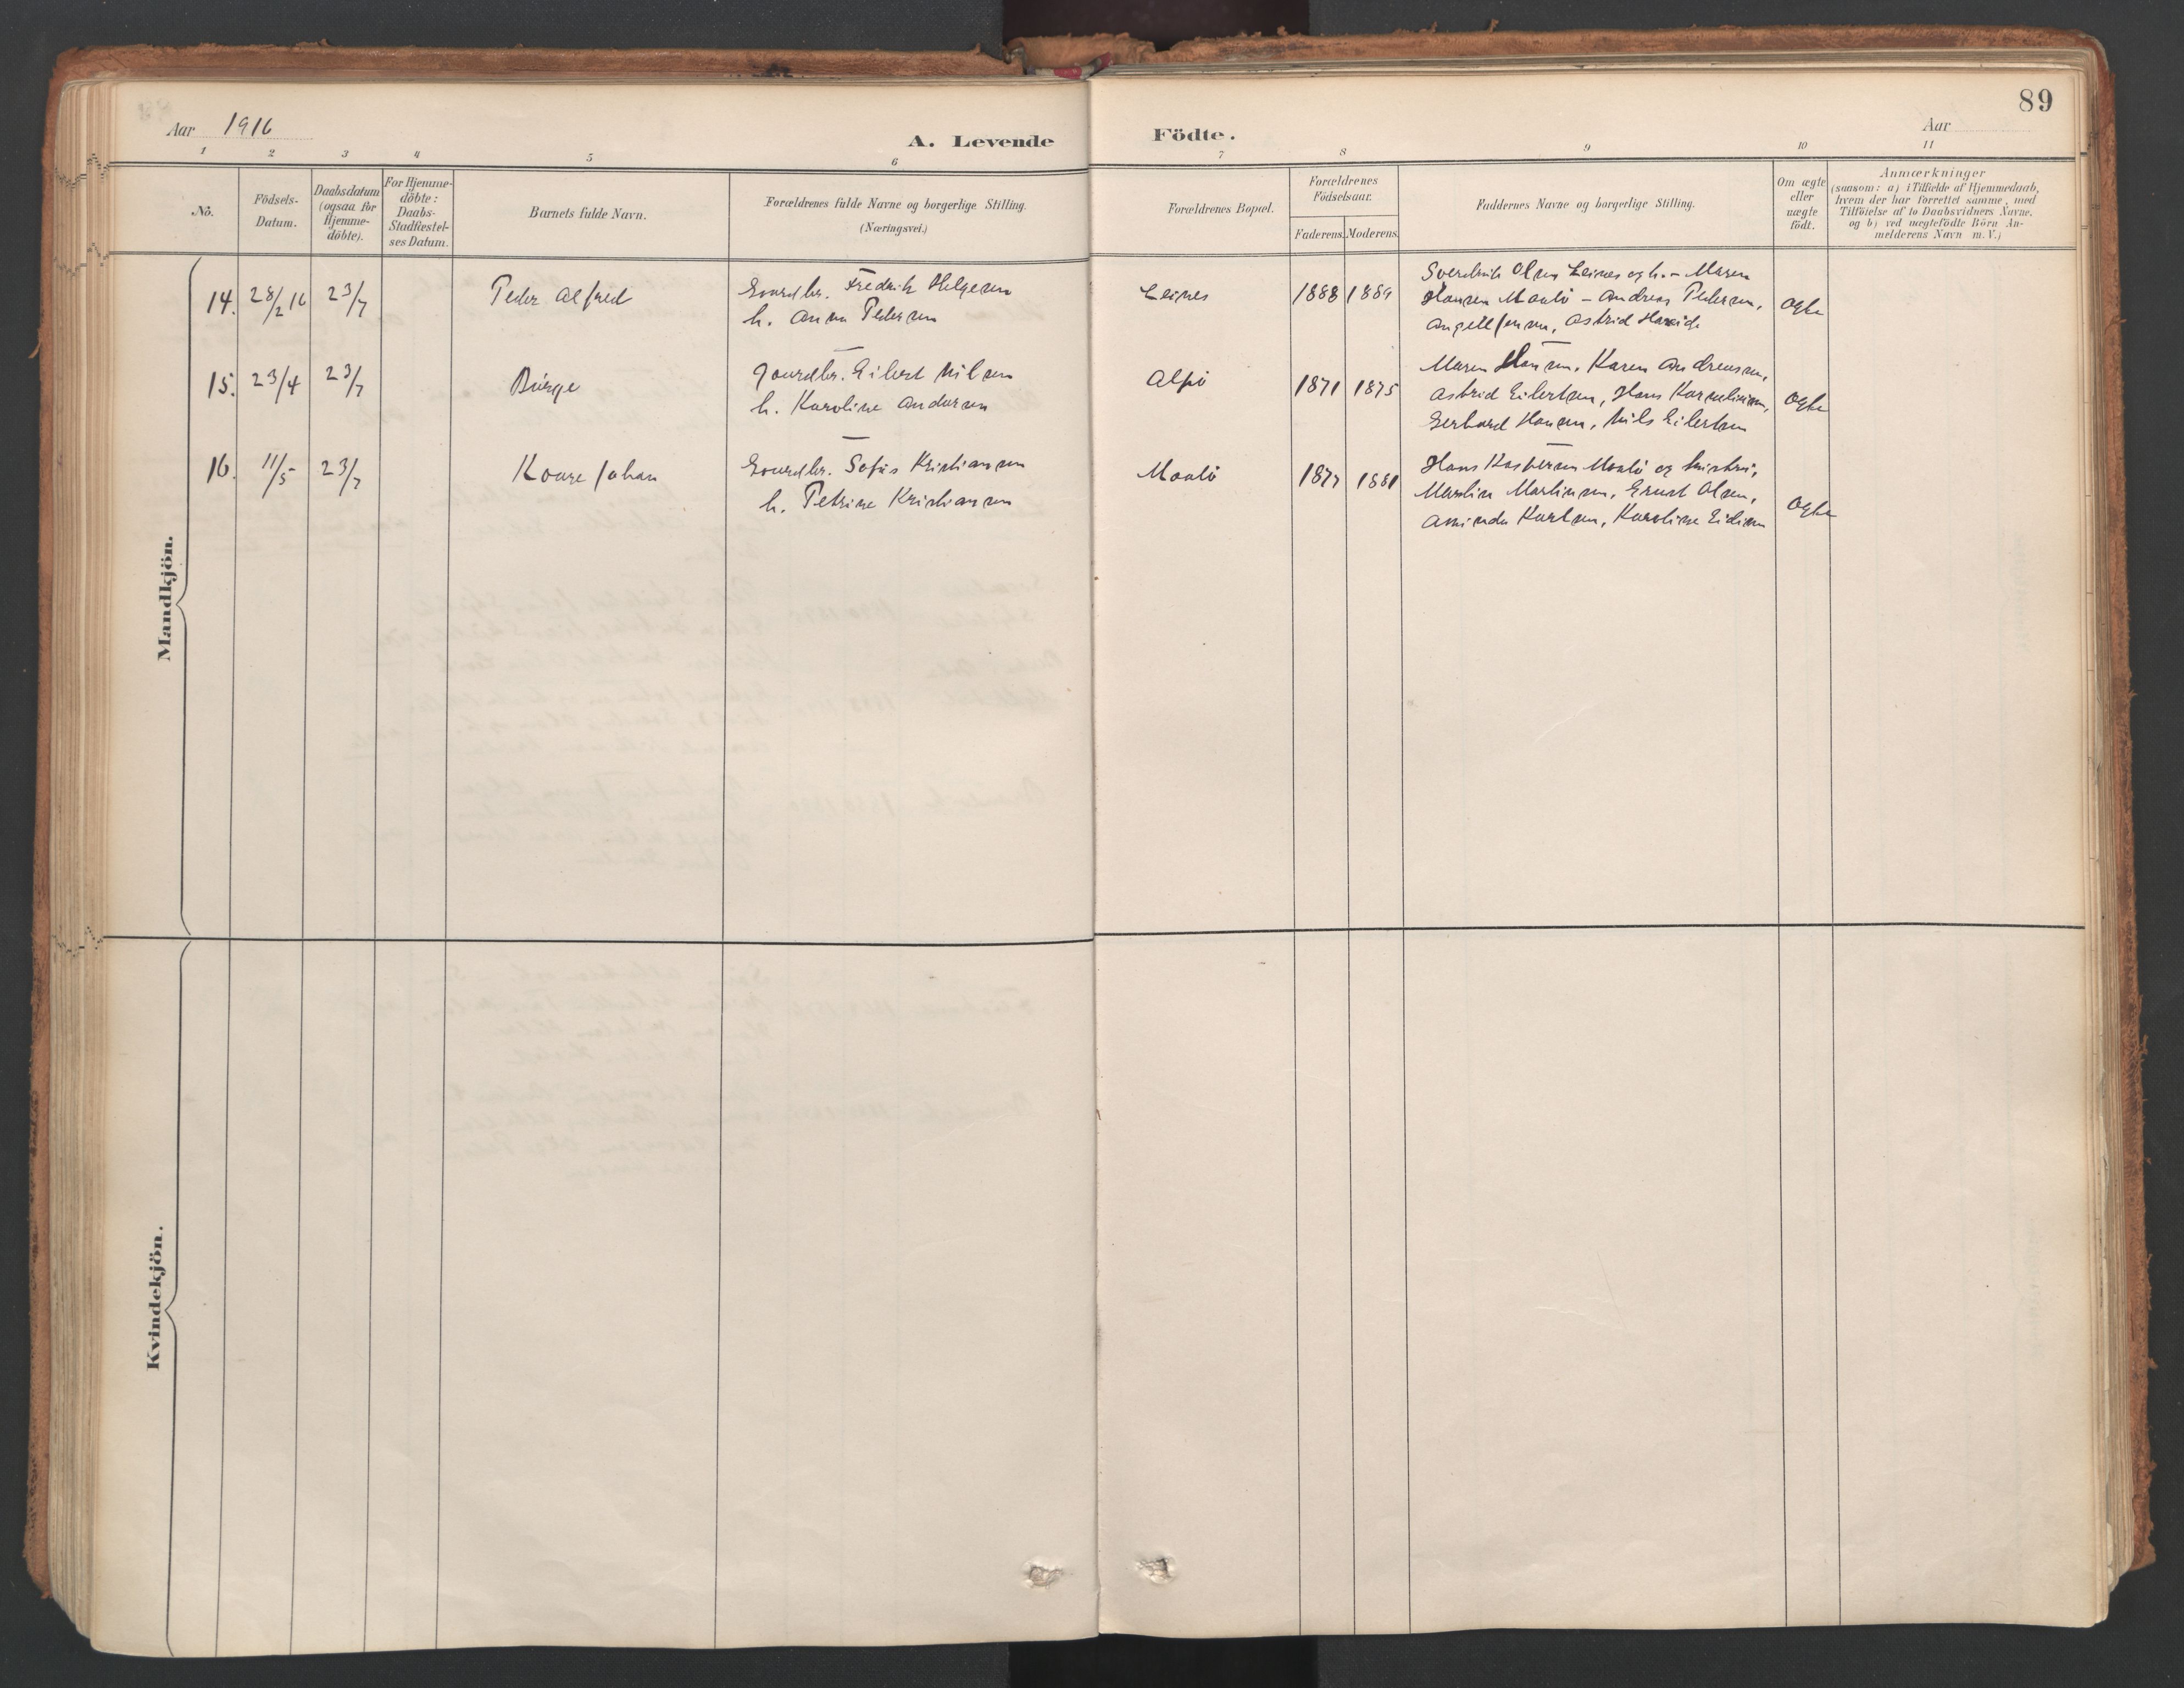 89
Aar 1916
A. Levende Födte.
Aar
1 2 3 4 5 6 7 8 9 10 11
No.
Födsels-
Datum.
Daabsdatum
(ogsaa for
Hjemme-
döbte).
For Hjemme-
döbte:
Daabs-
Stadfæstel-
ses Datum.
Barnets fulde Navn.
Forældrenes fulde Navne og borgerlige Stilling.
(Næringsvei.)
Forældrenes Bopæl.
Forældrenes
Födselsaar.
Faderens. Moderens.
Faddernes Navne og borgerlige Stilling.
Om ægte
eller
uægte
födt.
Anmærkninger
(saasom: a) i Tilfælde af Hjemmedaab,
hvem der har forrettet samme, med
Tilföielse af to Daabsvidners Navne.
og b) ved uægtefödte Börn An-
melderens Navn m. V.)
Mandkjön.
14. 28/2 16 23/7 Peder Alfred
Gaardbr. Fredrik Helgesen
h. Anna Pedersen
Leines 1888 1889
Olsen Leines og h. – Maren
Hansen Maalö – Andreas Pedersen,
Jensen, Astrid
Ogte
15. 23/4 23/7 Börge
Gaardbr. Eilert Nilsen
h. Karoline Andersen
Alsö 1871 1875
Maren Hansen, Karen Andreasen,
Astrid Eilertsen, Hans Korneliusen,
Gerhard Hansen, Nils Eilertsen
Ogte
16. 11/5 23/7 Kaare Johan
Gaardbr. Sofus Kristiansen
h. Petrine Kristiansen
Maalö 1877 1881
Hans Kaspersen Maalö og hustru,
Martin Martinsen, Ernst Olsen,
Aminda Karlsen, Karoline Eidissen
Ogte
Kvindekjön.